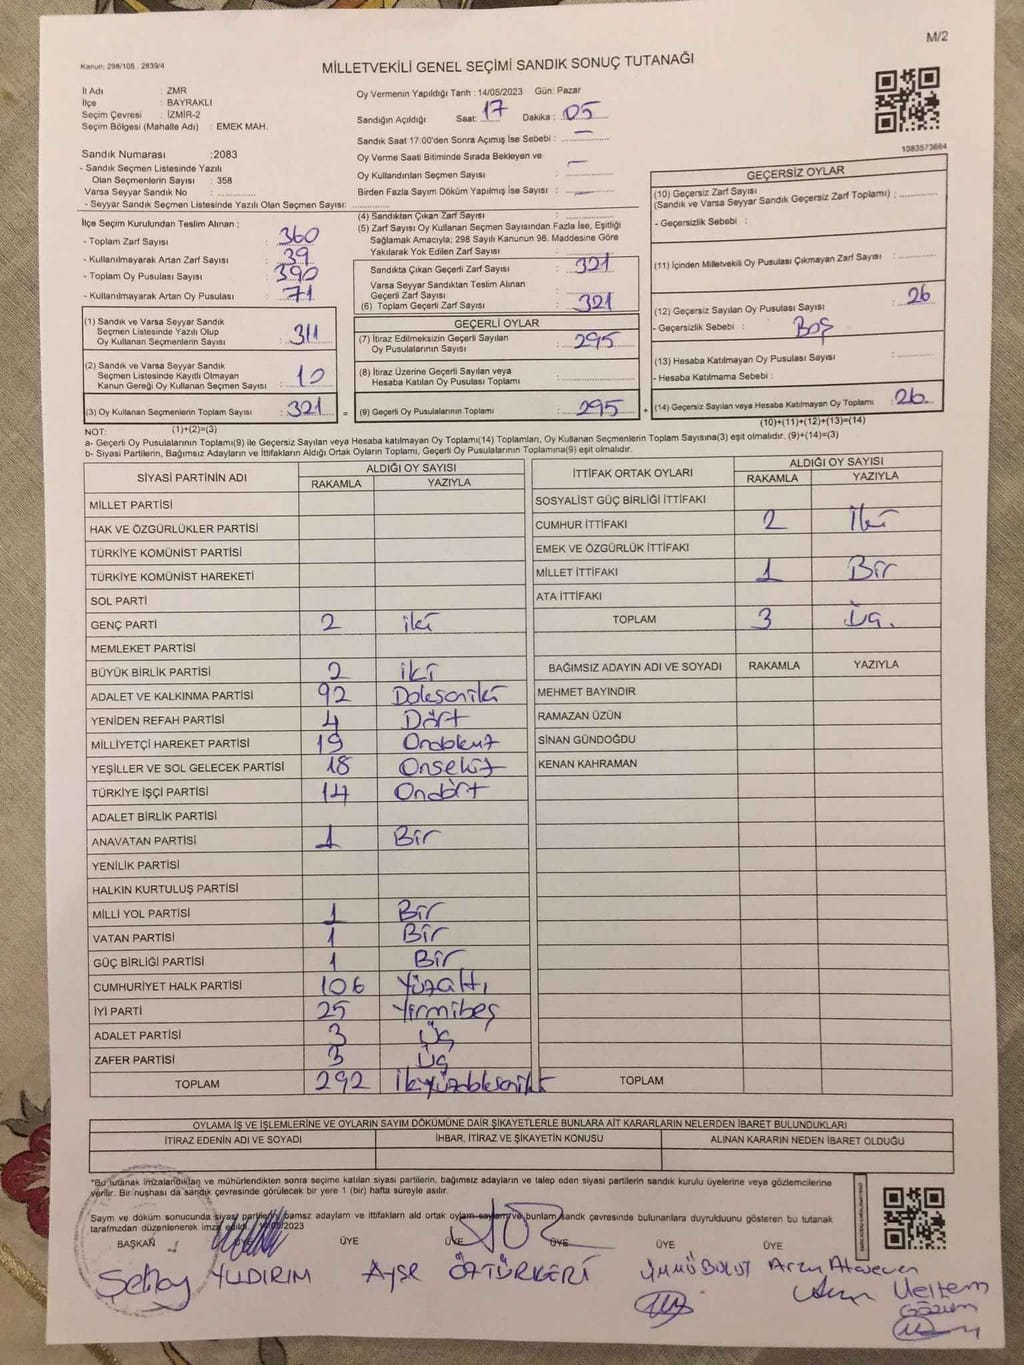 M/2
Kanun: 298/105 , 2839/4
MİLLETVEKİLİ GENEL SEÇİMİ SANDIK SONUÇ TUTANAĞI
İl Adı : ZMR
İlçe : BAYRAKLI
Seçim Çevresi : İZMİR-2
Seçim Bölgesi (Mahalle Adı) : EMEK MAH.
Oy Vermenin Yapıldığı Tarih : 14/05/2023 Gün: Pazar
Sandığın Açıldığı Saat: 17 Dakika : 05
Sandık Saat 17:00'den Sonra Açımış İse Sebebi : —
Oy Verme Saati Bitiminde Sırada Bekleyen ve
Oy Kullandırılan Seçmen Sayısı : —
Birden Fazla Sayım Döküm Yapılmış İse Sayısı : —
1083573664
Sandık Numarası :2083
- Sandık Seçmen Listesinde Yazılı
Olan Seçmenlerin Sayısı : 358
Varsa Seyyar Sandık No :
- Seyyar Sandık Seçmen Listesinde Yazılı Olan Seçmen Sayısı:
İlçe Seçim Kurulundan Teslim Alınan :
- Toplam Zarf Sayısı : 360
- Kullanılmayarak Artan Zarf Sayısı : 39
- Toplam Oy Pusulası Sayısı : 390
- Kullanılmayarak Artan Oy Pusulası : 71
(1) Sandık ve Varsa Seyyar Sandık
Seçmen Listesinde Yazılı Olup
Oy Kullanan Seçmenlerin Sayısı : 311
(2) Sandık ve Varsa Seyyar Sandık
Seçmen Listesinde Kayıtlı Olmayan
Kanun Gereği Oy Kullanan Seçmen Sayısı : 10
(3) Oy Kullanan Seçmenlerin Toplam Sayısı : 321 =
(4) Sandıktan Çıkan Zarf Sayısı :
(5) Zarf Sayısı Oy Kullanan Seçmen Sayısından Fazla İse, Eşitliği
Sağlamak Amacıyla; 298 Sayılı Kanunun 98. Maddesine Göre
Yakılarak Yok Edilen Zarf Sayısı :
Sandıkta Çıkan Geçerli Zarf Sayısı : 321
Varsa Seyyar Sandıktan Teslim Alınan
Geçerli Zarf Sayısı :
(6) Toplam Geçerli Zarf Sayısı : 321
GEÇERLİ OYLAR
(7) İtiraz Edilmeksizin Geçerli Sayılan
Oy Pusulalarının Sayısı : 295
(8) İtiraz Üzerine Geçerli Sayılan veya
Hesaba Katılan Oy Pusulası Toplamı :
(9) Geçerli Oy Pusulalarının Toplamı : 295 +
GEÇERSİZ OYLAR
(10) Geçersiz Zarf Sayısı
(Sandık ve Varsa Seyyar Sandık Geçersiz Zarf Toplamı) :
- Geçersizlik Sebebi :
(11) İçinden Milletvekili Oy Pusulası Çıkmayan Zarf Sayısı :
(12) Geçersiz Sayılan Oy Pusulası Sayısı : 26
- Geçersizlik Sebebi : Boş
(13) Hesaba Katılmayan Oy Pusulası Sayısı :
- Hesaba Katılmama Sebebi :
(14) Geçersiz Sayılan veya Hesaba Katılmayan Oy Toplamı : 26
NOT: (1)+(2)=(3)
(10)+(11)+(12)+(13)=(14)
a- Geçerli Oy Pusulalarının Toplamı(9) ile Geçersiz Sayılan veya Hesaba katılmayan Oy Toplamı(14) Toplamları, Oy Kullanan Seçmenlerin Toplam Sayısına(3) eşit olmalıdır. (9)+(14)=(3)
b- Siyasi Partilerin, Bağımsız Adayların ve İttifakların Aldığı Ortak Oyların Toplamı, Geçerli Oy Pusulalarının Toplamına(9) eşit olmalıdır.
SİYASİ PARTİNİN ADI ALDIĞI OY SAYISI
RAKAMLA YAZIYLA
MİLLET PARTİSİ
HAK VE ÖZGÜRLÜKLER PARTİSİ
TÜRKİYE KOMÜNİST PARTİSİ
TÜRKİYE KOMÜNİST HAREKETİ
SOL PARTİ
GENÇ PARTİ 2 iki
MEMLEKET PARTİSİ
BÜYÜK BİRLİK PARTİSİ 2 iki
ADALET VE KALKINMA PARTİSİ 92 Doksaniki
YENİDEN REFAH PARTİSİ 4 Dört
MİLLİYETÇİ HAREKET PARTİSİ 19 Ondokuz
YEŞİLLER VE SOL GELECEK PARTİSİ 18 Onsekiz
TÜRKİYE İŞÇİ PARTİSİ 14 Ondört
ADALET BİRLİK PARTİSİ
ANAVATAN PARTİSİ 1 Bir
YENİLİK PARTİSİ
HALKIN KURTULUŞ PARTİSİ
MİLLİ YOL PARTİSİ 1 Bir
VATAN PARTİSİ 1 Bir
GÜÇ BİRLİĞİ PARTİSİ 1 Bir
CUMHURİYET HALK PARTİSİ 106 Yüzaltı
İYİ PARTİ 25 Yirmibeş
ADALET PARTİSİ 3 Üç
ZAFER PARTİSİ 3 Üç
TOPLAM 292 İkiyüzdoksaniki
İTTİFAK ORTAK OYLARI ALDIĞI OY SAYISI
RAKAMLA YAZIYLA
SOSYALİST GÜÇ BİRLİĞİ İTTİFAKI
CUMHUR İTTİFAKI 2 İki
EMEK VE ÖZGÜRLÜK İTTİFAKI
MİLLET İTTİFAKI 1 Bir
ATA İTTİFAKI
TOPLAM 3 Üç.
BAĞIMSIZ ADAYIN ADI VE SOYADI RAKAMLA YAZIYLA
MEHMET BAYINDIR
RAMAZAN ÜZÜN
SİNAN GÜNDOĞDU
KENAN KAHRAMAN
TOPLAM
OYLAMA İŞ VE İŞLEMLERİNE VE OYLARIN SAYIM DÖKÜMÜNE DAİR ŞİKAYETLERLE BUNLARA AİT KARARLARIN NELERDEN İBARET BULUNDUKLARI
İTİRAZ EDENİN ADI VE SOYADI İHBAR, İTİRAZ VE ŞİKAYETİN KONUSU ALINAN KARARIN NEDEN İBARET OLDUĞU
*Bu tutanak imzalandıktan ve mühürlendikten sonra seçime katılan siyasi partilerin, bağımsız adayların ve talep eden siyasi partilerin sandık kurulu üyelerine veya gözlemcilerine
verilir. Bir nüshası da sandık çevresinde görülecek bir yere 1 (bir) hafta süreyle asılır.
Sayım ve döküm sonucunda siyasi partilerin, bamsz adayların ve ittifakların ald ortak oyların sayıları ve bunların sandk çevresinde bulunanlara duyrulduunu gösteren bu tutanak
tarafmzdan düzenlenerek imza edildi. 14/05/2023
BAŞKAN ÜYE ÜYE ÜYE ÜYE ÜYE ÜYE
YILDIRIM Ayşe ÖZTÜRKERİ ÜMMÜ BOLUT Arzu
Gözüm